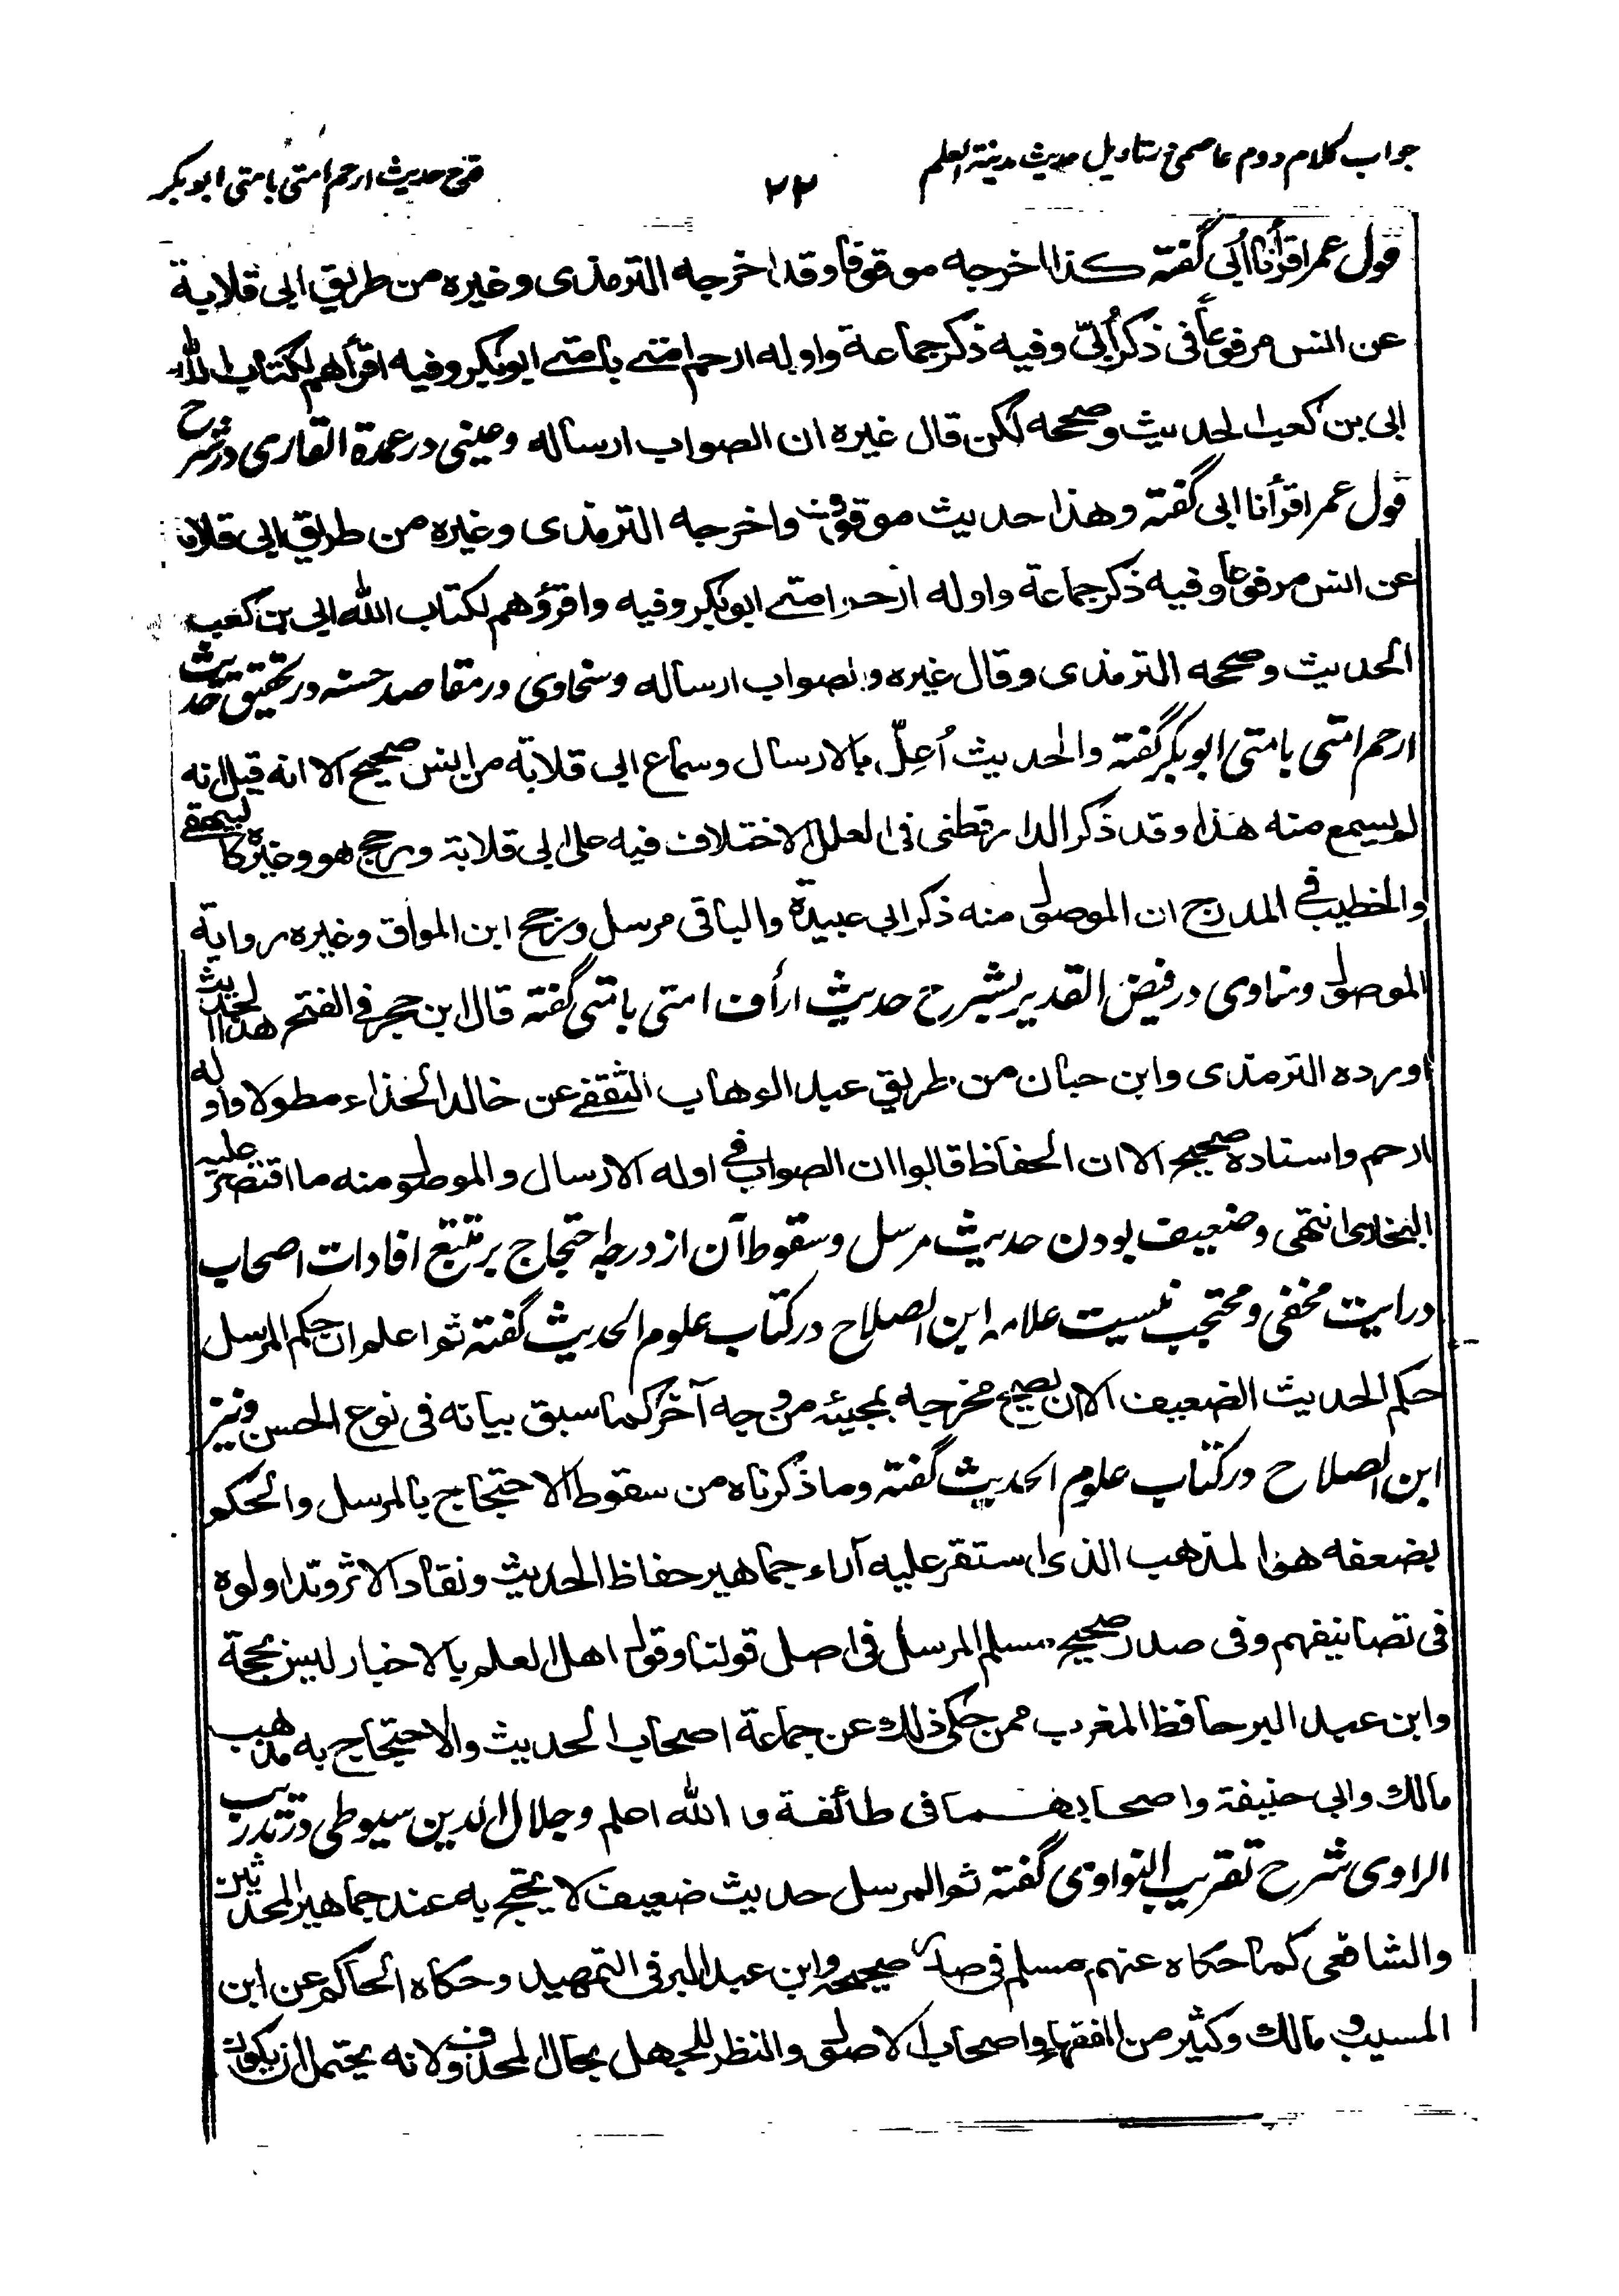 جواب کلام دوم عاصمی در تاویل حدیث مدینة العلم
۲۲
قدح حدیث ارحم امتی بامتی ابوبکر
قول عمر اقرأنا اُبی گفته کذا اخرجه موقوفا وقد اخرجه الترمذی وغیره من طریق ابی قلابة
عن انس مرفوعاً فی ذکر اُبیّ وفیه ذکر جماعة واوله ارحم امتے بامتے ابوبکر وفیه اقرأهم لکتاب الله
ابی بن کعب الحدیث وصححه لکن قال غیره ان الصواب ارساله وعینی در عمدة القاری در شرح
قول عمر اقرأنا ابی گفته وهذا حدیث موقوف واخرجه الترمذی وغیره من طریق ابی قلابة
عن انس مرفوعا وفیه ذکر جماعة واوله ارحم امتے ابوبکر وفیه واقرؤهم لکتاب الله ابی بن کعب
الحدیث وصححه الترمذی وقال غیره والصواب ارساله وسخاوی در مقاصد حسنه در تحقیق حدیث
ارحم امتی بامتی ابوبکر گفته والحدیث اُعِلّ بالارسال وسماع ابی قلابة من انس صحیح الا انه قیل انه
لم یسمع منه هذا وقد ذکر الدارقطنی فی العلل الاختلاف فیه علی ابی قلابة ورجح هو وغیره کالبیهقے
والخطیب فی المدرج ان الموصول منه ذکر ابی عبیدة والباقی مرسل ورجح ابن المواق وغیره روایة
الموصول ومناوی در فیض القدیر بشرح حدیث ارأف امتی بامتی گفته قال ابن حجر فی الفتح هذا الحدیث
اورده الترمذی وابن حبان من طریق عبد الوهاب الثقفے عن خالد الحذاء مطولا واوله
ارحم واسناده صحیح الا ان الحفاظ قالوا ان الصواب فی اوله الارسال والموصول منه ما اقتصر علیه
البخاری انتهی وضعیف بودن حدیث مرسل وسقوط آن از درجه احتجاج بر متتبع افادات اصحاب
درایت مخفی ومحتجب نیست علامه ابن الصلاح در کتاب علوم الحدیث گفته ثم اعلم ان حکم المرسل
حکم الحدیث الضعیف الا ان یصح مخرجه بمجیئه من وجه آخر کما سبق بیانه فی نوع الحسن ونیز
ابن الصلاح در کتاب علوم الحدیث گفته وما ذکرناه من سقوط الاحتجاج بالمرسل والحکم
بضعفه هو المذهب الذی استقر علیه آراء جماهیر حفاظ الحدیث ونقاد الاثر وتداولوه
فی تصانیفهم وفی صدر صحیح مسلم المرسل فی اصل قولنا وقول اهل العلم بالاخبار لیس بحجة
وابن عبد البر حافظ المغرب ممن حکی ذلك عن جماعة اصحاب الحدیث والاحتجاج به مذهب
مالك وابی حنیفة واصحابهما فی طائفة والله اعلم وجلال الدین سیوطی در تدریب
الراوی شرح تقریب النواوی گفته ثم المرسل حدیث ضعیف لا یحتج به عند جماهیر المحدثین
والشافعی کما حکاه عنهم مسلم فی صدر صحیحه وابن عبد البر فی التمهید وحکاه الحاکم عن ابن
المسیب ومالك وکثیر من الفقهاء واصحاب الاصول والنظر للجهل بحال المحذوف ولانه یحتمل ان یکون